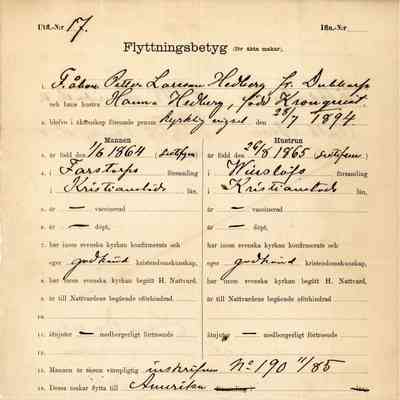 Utfl.-N:r 17. Ifln.-N:r
Flyttningsbetyg (för äkta makar).
1. F. åbon Petter Larsson Hedberg fr. Dubbarp
och hans hustru Hanna Hedberg, född Kronqvist
2. blefvo i äktenskap förenade genom kyrklig vigsel den 28/7 1894.
Mannen Hustrun
3. är född den 1/6 1864 ( ) är född den 26/8 1865 ( )
4. i Farstorps församling i Winslöfs församling
i Kristianstads län, i Kristianstads län,
5. är — vaccinerad är — vaccinerad
6. är — döpt, är — döpt,
7. har inom svenska kyrkan konfirmerats och har inom svenska kyrkan konfirmerats och
eger godkänd kristendomskunskap, eger godkänd kristendomskunskap,
8. har inom svenska kyrkan begått H. Nattvard, har inom svenska kyrkan begått H. Nattvard,
9. är till Nattvardens begående oförhindrad är till Nattvardens begående oförhindrad
10.
11. åtnjuter — medborgerligt förtroende åtnjuter — medborgerligt förtroende
12.
13. Mannen är såsom värnpligtig inskrifven No 190 11/85
14. Dessa makar flytta till Amerika församling i län.